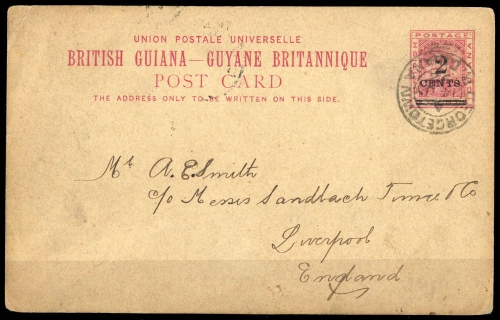 UNION POSTALE UNIVERSELLE
BRITISH GUIANA—GUYANE BRITANNIQUE
POST CARD
THE ADDRESS ONLY TO BE WRITTEN ON THIS SIDE.
POSTAGE
2
CENTS.
GEORGETOWN
Mr A. E. Smith
c/o Messrs Sandbach Tinne & Co
Liverpool
England